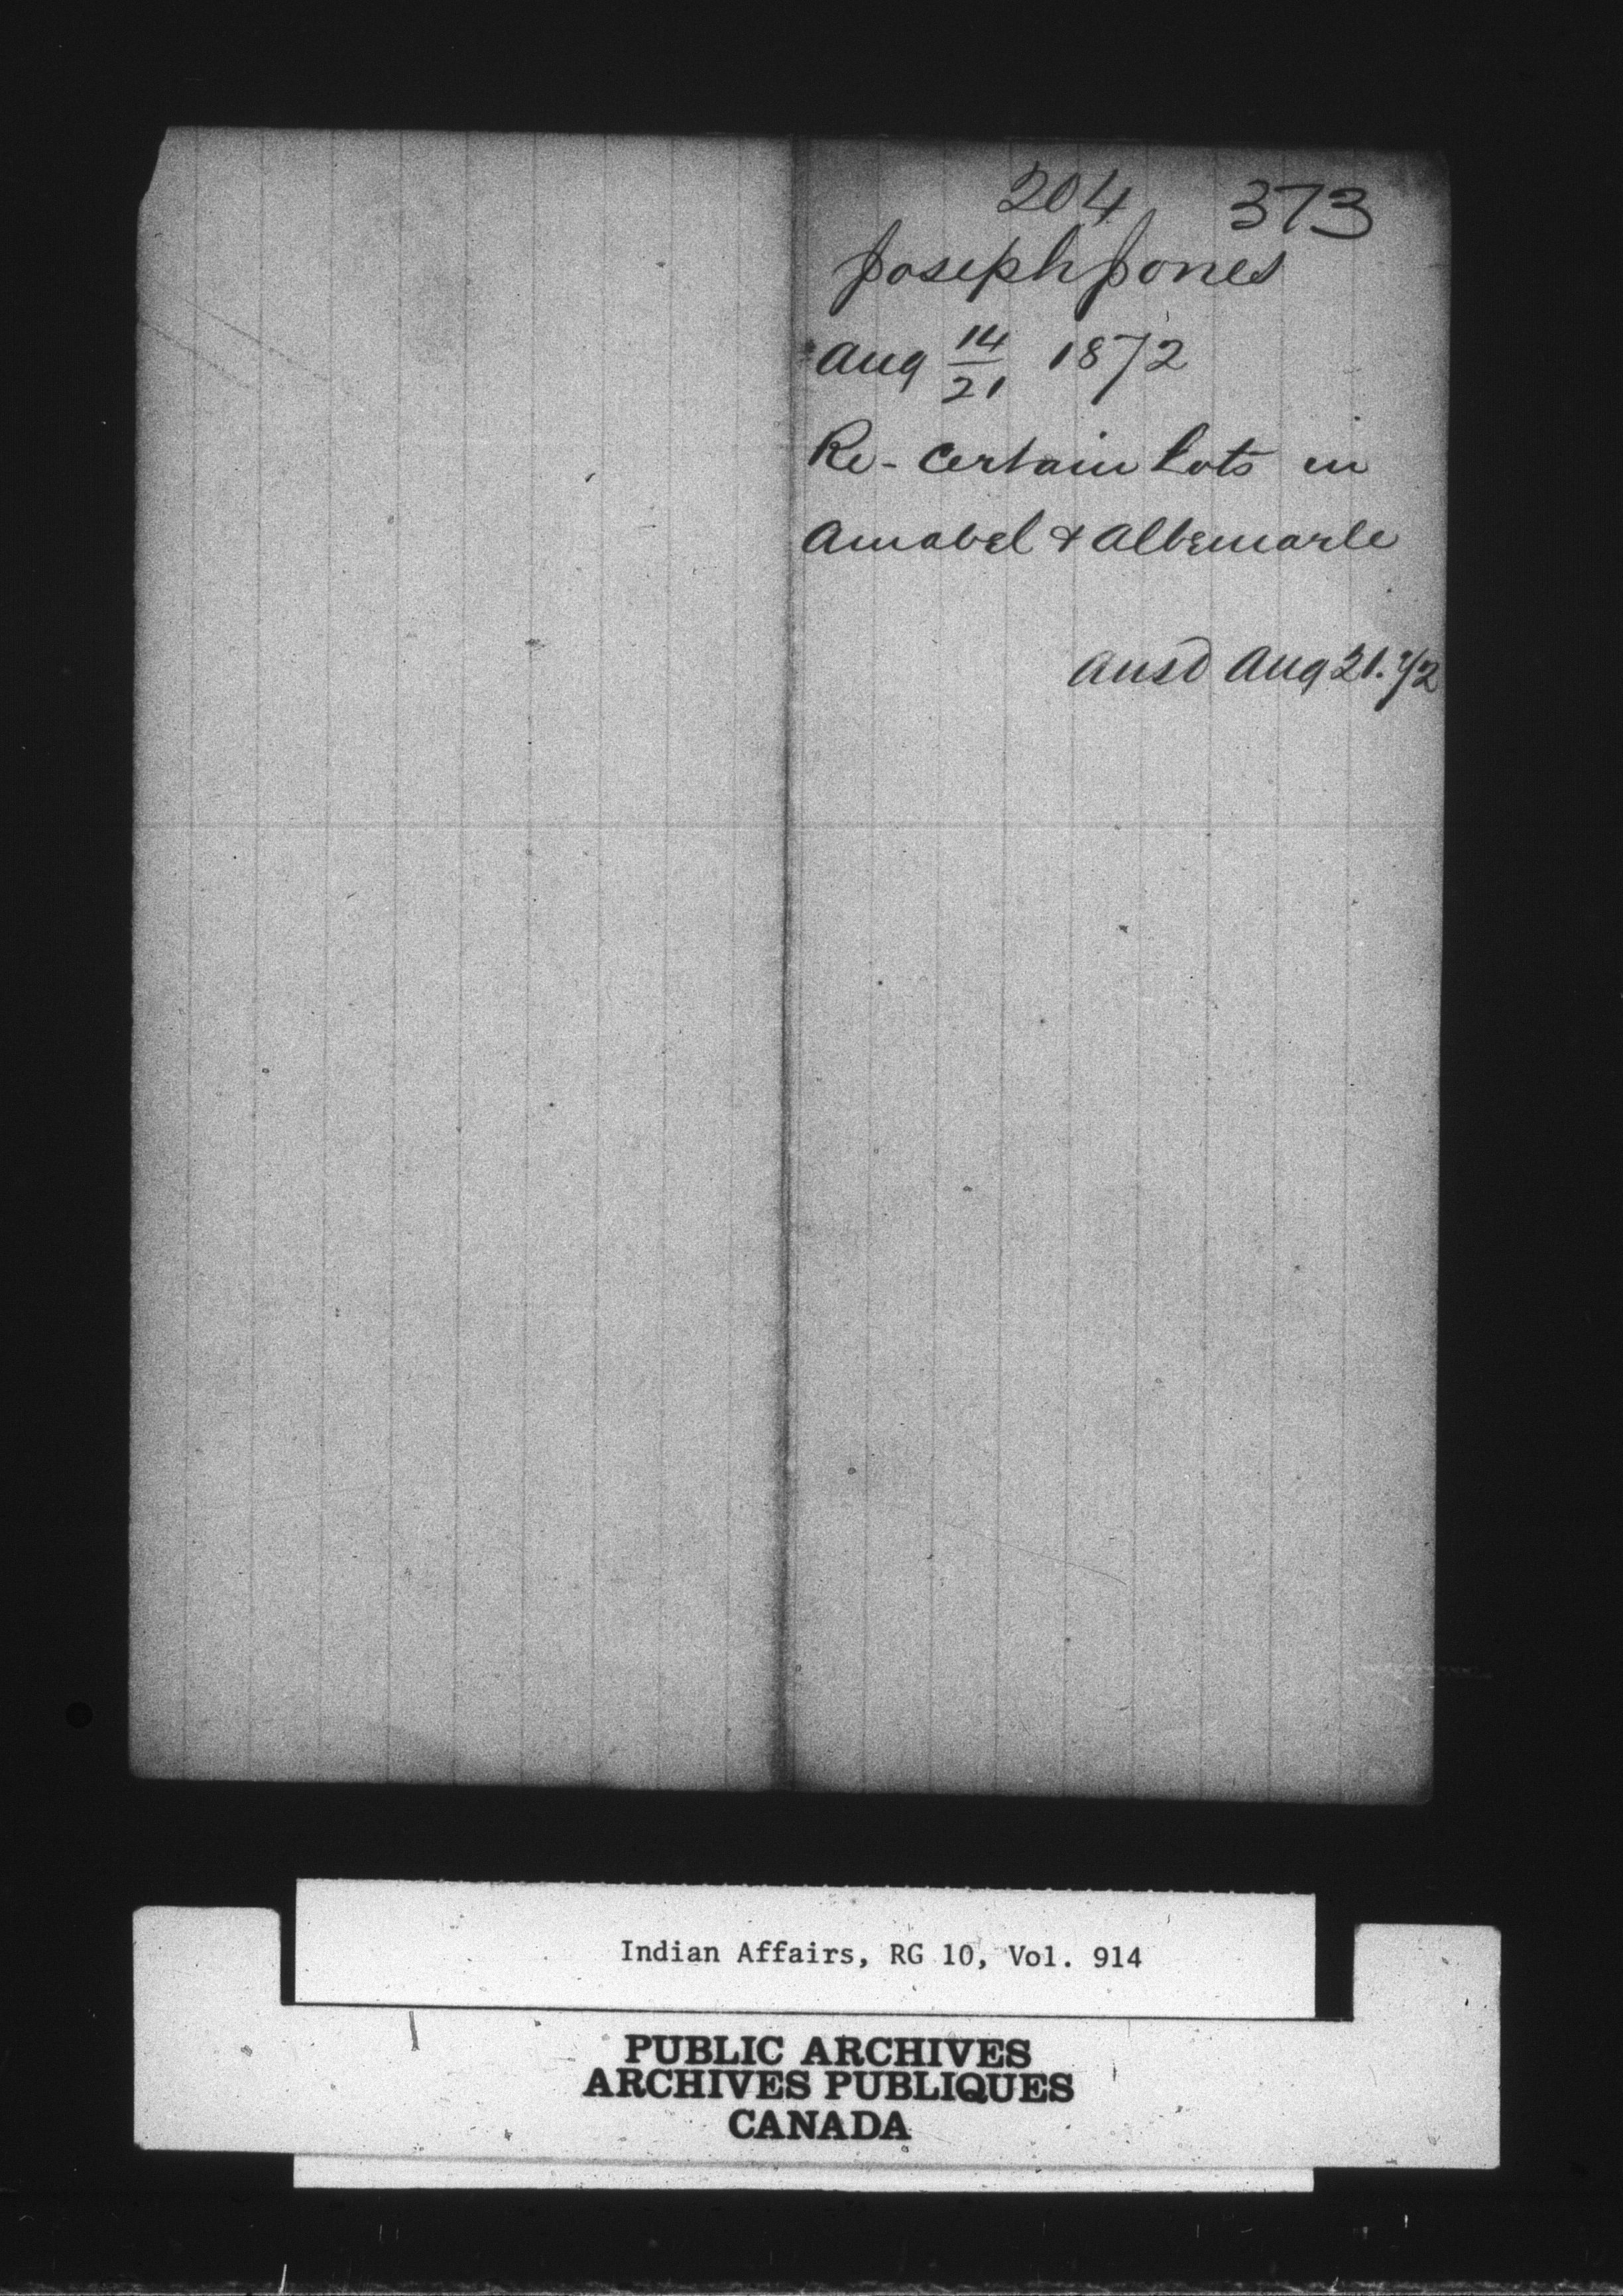 204 373
Joseph Jones
Aug 14/21 1872
Re- Certain Lots in
Amabel & Albemarle
Ansd Aug 21. 72
Indian Affairs, RG 10, Vol. 914
PUBLIC ARCHIVES
ARCHIVES PUBLIQUES
CANADA